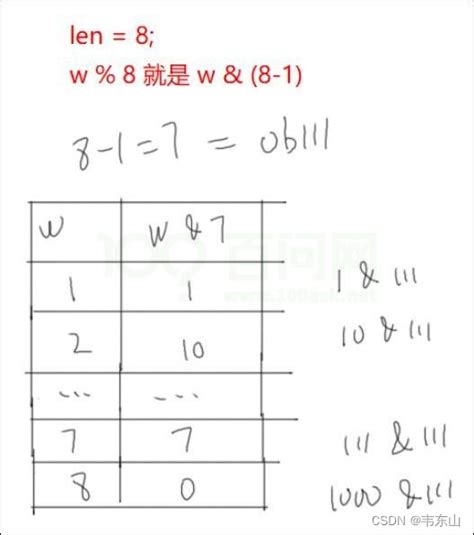 len = 8;
w % 8 就是 w & (8-1)
8-1=7 = 0b111
w w & 7
1 1 1 & 111
2 10 10 & 111
... ...
7 7 111 & 111
8 0 1000 & 111
100 百问网
www.100ask.net
CSDN @韦东山